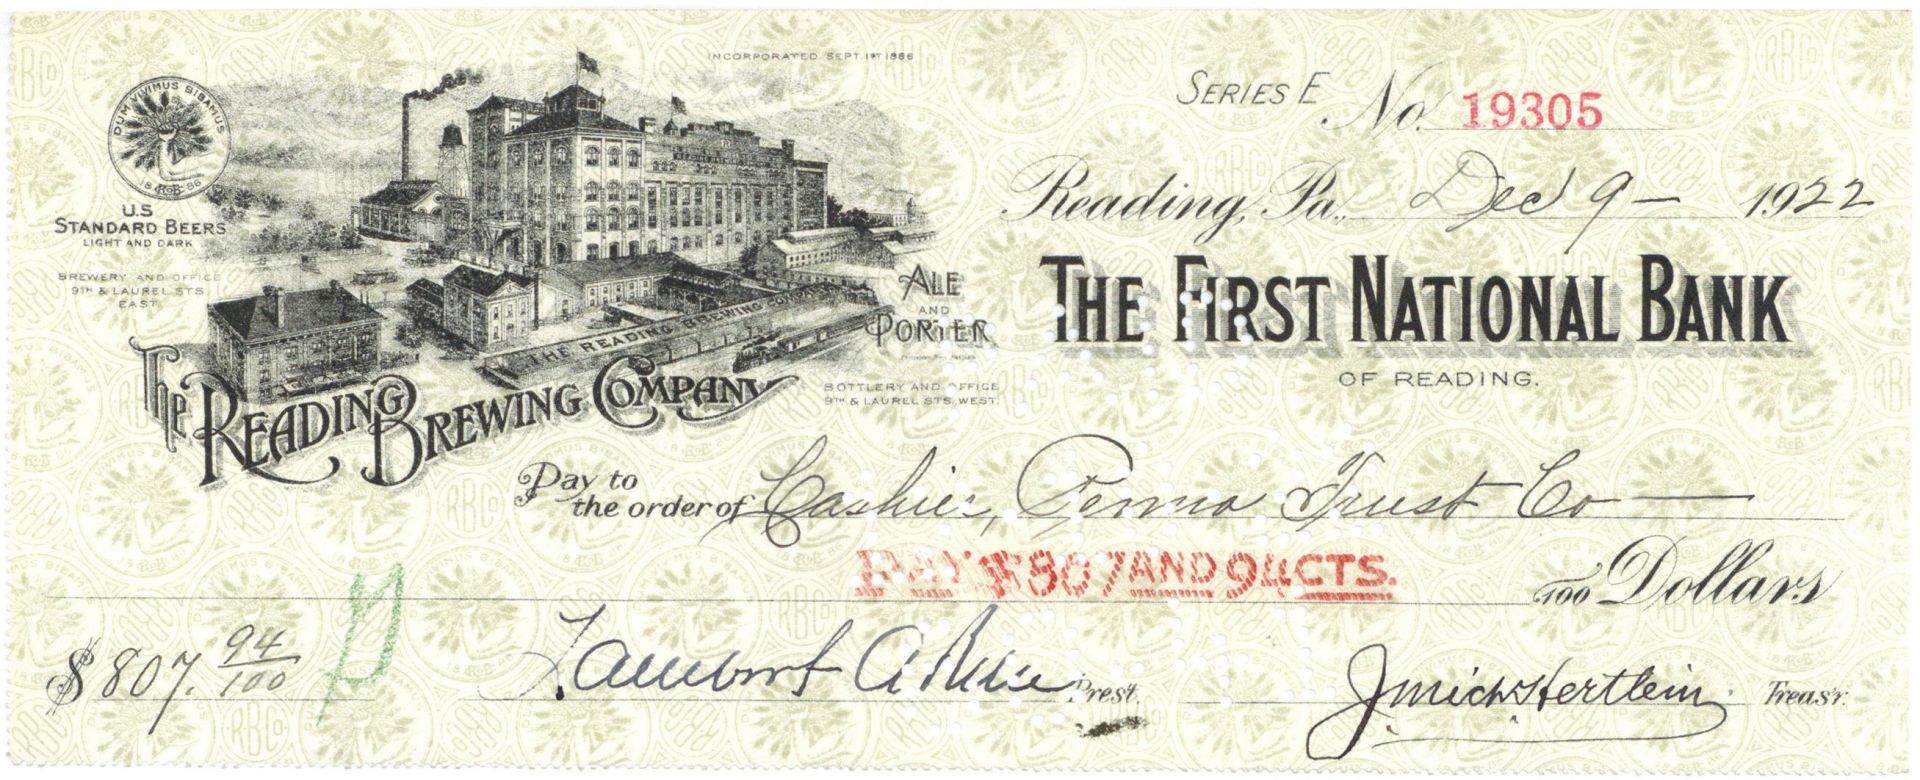 INCORPORATED SEPT. 1ST 1886
SERIES E No. 19305
DUM VIVIMUS BIBAMUS
18 RBCo 86
U.S
STANDARD BEERS
LIGHT AND DARK
Reading, Pa., Dec 9 - 1922
BREWERY AND OFFICE
9TH & LAUREL STS
EAST
ALE
AND
PORTER
THE FIRST NATIONAL BANK
OF READING.
THE READING BREWING COMPANY
BOTTLERY AND OFFICE
9TH & LAUREL STS, WEST.
The Reading Brewing Company
Pay to
the order of Cashier, Penna Trust Co
PAY $807 AND 94 CTS.
100 Dollars
$807. 94/100
Prest.
J. Mich Hertlein Treas'r.